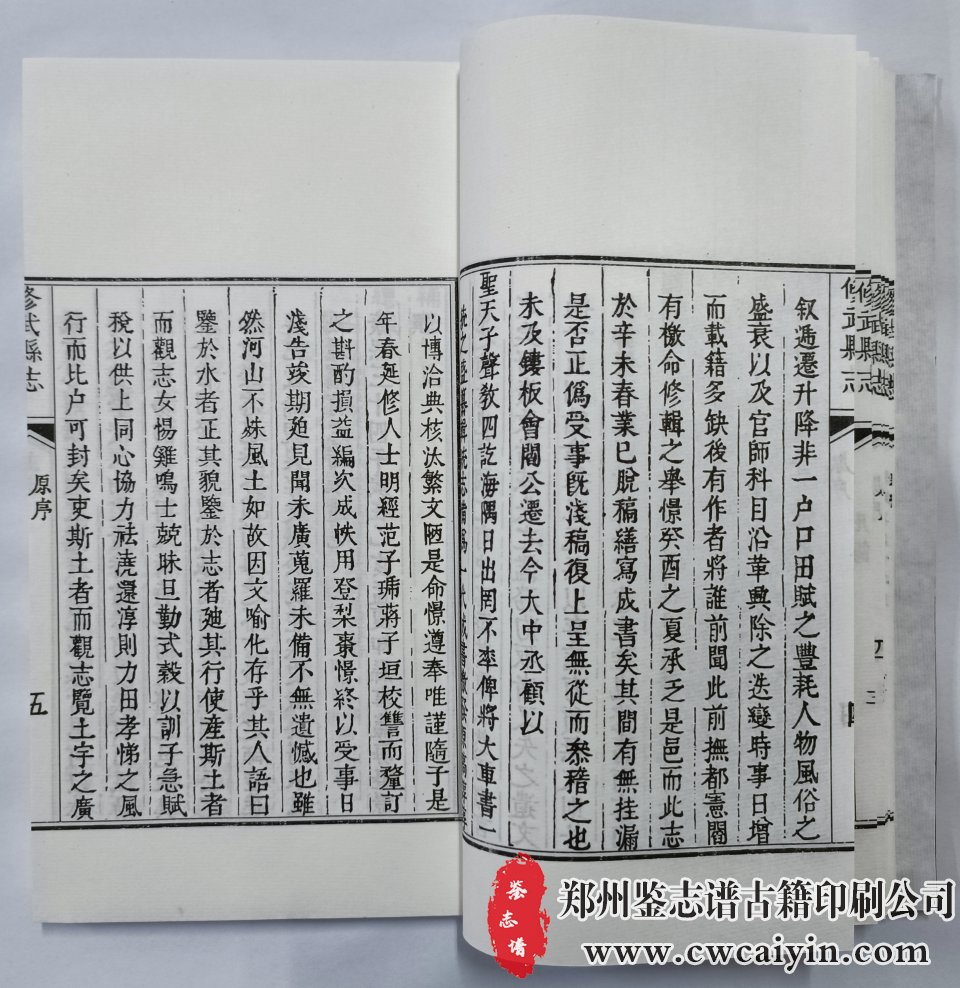 叙遞遷升降非一户口田賦之豐耗人物風俗之
盛衰以及官師科目沿革興除之迭變時事日增
而載籍多缺後有作者將誰前聞此前撫都憲閻
有檄命修輯之舉憬癸酉之夏承乏是邑而此志
於辛未春業已脫稿繕寫成書矣其間有無挂漏
是否正僞受事旣淺稿復上呈無從而叅稽之也
未及鏤板會閻公遷去今大中丞顧以
聖天子聲敎四訖海隅日出罔不率俾將大車書一
統之盛纂輯
以博洽典核汰繁文陋是命憬遵奉唯謹隨于是
年春延修人士明經范子琋蔣子垣校讐而釐訂
之斟酌損益編次成帙用登梨棗憬終以受事日
淺告竣期廹見聞未廣蒐羅未備不無遺憾也雖
然河山不姝風土如故因文喻化存乎其人語曰
鑒於水者正其貌鑒於志者廸其行使産斯土者
而觀志女惕雞鳴士兢昧旦勤式穀以訓子急賦
稅以供上同心協力祛澆還淳則力田孝悌之風
行而比户可封矣吏斯土者而觀志覽土宇之廣
修武縣志
原序
五
修武縣志
鉴志谱
郑州鉴志谱古籍印刷公司
www.cwcaiyin.com